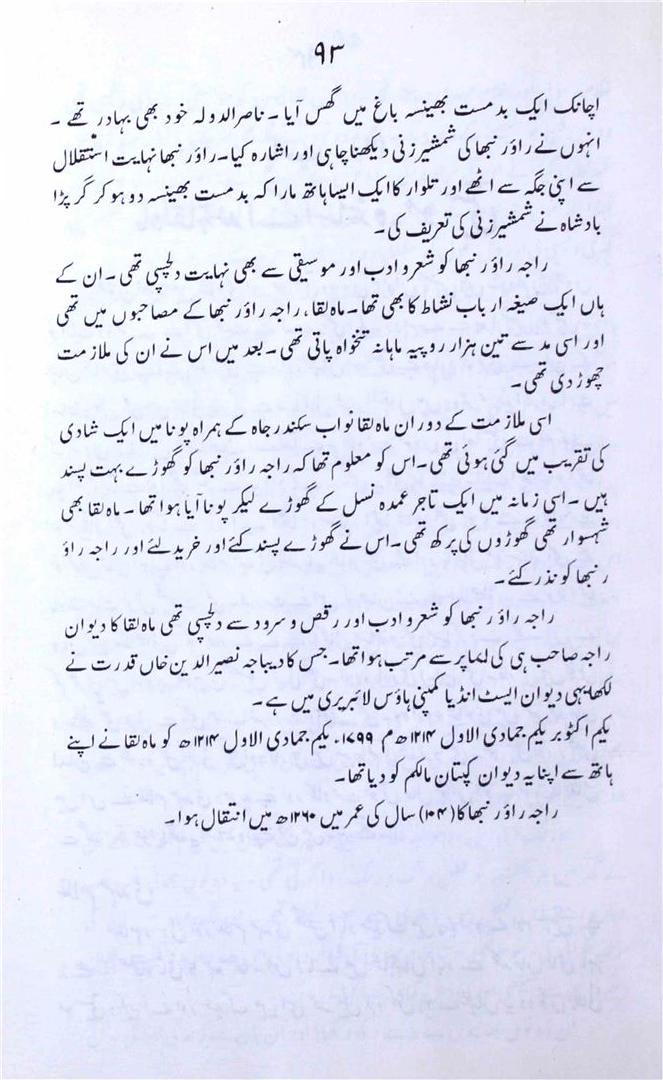 ۹۳
اچانک ایک بدمست بھینسہ باغ میں گھس آیا۔ ناصرالدولہ خود بھی بہادر تھے۔
انہوں نے راؤ رنبھا کی شمشیر زنی دیکھنا چاہی اور اشارہ کیا۔ راؤ رنبھا نہایت استقلال
سے اپنی جگہ سے اٹھے اور تلوار کا ایک ایسا ہاتھ مارا کہ بدمست بھینسہ دو ہو کر گر پڑا
بادشاہ نے شمشیر زنی کی تعریف کی۔
راجہ راؤ رنبھا کو شعر و ادب اور موسیقی سے بھی نہایت دلچسپی تھی۔ ان کے
ہاں ایک صیغہ ارباب نشاط کا بھی تھا۔ ماہ لقا، راجہ راؤ رنبھا کے مصاحبوں میں تھی
اور اسی مد سے تین ہزار روپیہ ماہانہ تنخواہ پاتی تھی۔ بعد میں اس نے ان کی ملازمت
چھوڑ دی تھی۔
اسی ملازمت کے دوران ماہ لقا نواب سکندر جاہ کے ہمراہ پونا میں ایک شادی
کی تقریب میں گئی ہوئی تھی۔ اس کو معلوم تھا کہ راجہ راؤ رنبھا کو گھوڑے بہت پسند
ہیں۔ اسی زمانہ میں ایک تاجر عمدہ نسل کے گھوڑے لیکر پونا آیا ہوا تھا۔ ماہ لقا بھی
شہسوار تھی گھوڑوں کی پرکھ تھی۔ اس نے گھوڑے پسند کئے اور خرید لئے اور راجہ راؤ
رنبھا کو نذر کئے۔
راجہ راؤ رنبھا کو شعر و ادب اور رقص و سرود سے دلچسپی تھی ماہ لقا کا دیوان
راجہ صاحب ہی کی ایما پر سے مرتب ہوا تھا۔ جس کا دیباجہ نصیر الدین خاں قدرت نے
لکھا یہی دیوان ایسٹ انڈیا کمپنی ہاؤس لائبریری میں ہے۔
یکم اکٹوبر یکم جمادی الاول ۱۲۱۴ھ م ۱۷۹۹۔ یکم جمادی الاول ۱۲۱۴ھ کو ماہ لقا نے اپنے
ہاتھ سے اپنا یہ دیوان کپتان مالکم کو دیا تھا۔
راجہ راؤ رنبھا کا (۱۰۴) سال کی عمر میں ۱۲۶۰ھ میں انتقال ہوا۔